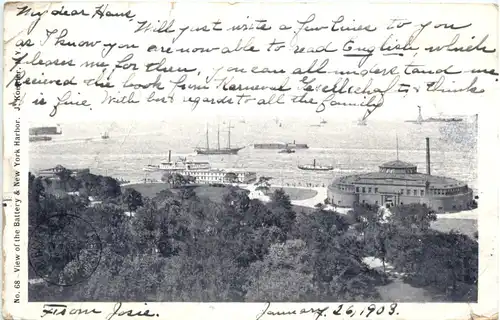 My dear Hans,
Will just write a few lines to you
as I know you are now able to read English, which
pleases me for then, you can all understand me
Received the book from Karneval Gesellschaft & thinks
is fine. With best regards to all the family
No. 68 - View of the Battery & New York Harbor. J. Koehler,
From Josie. January 26, 1903.